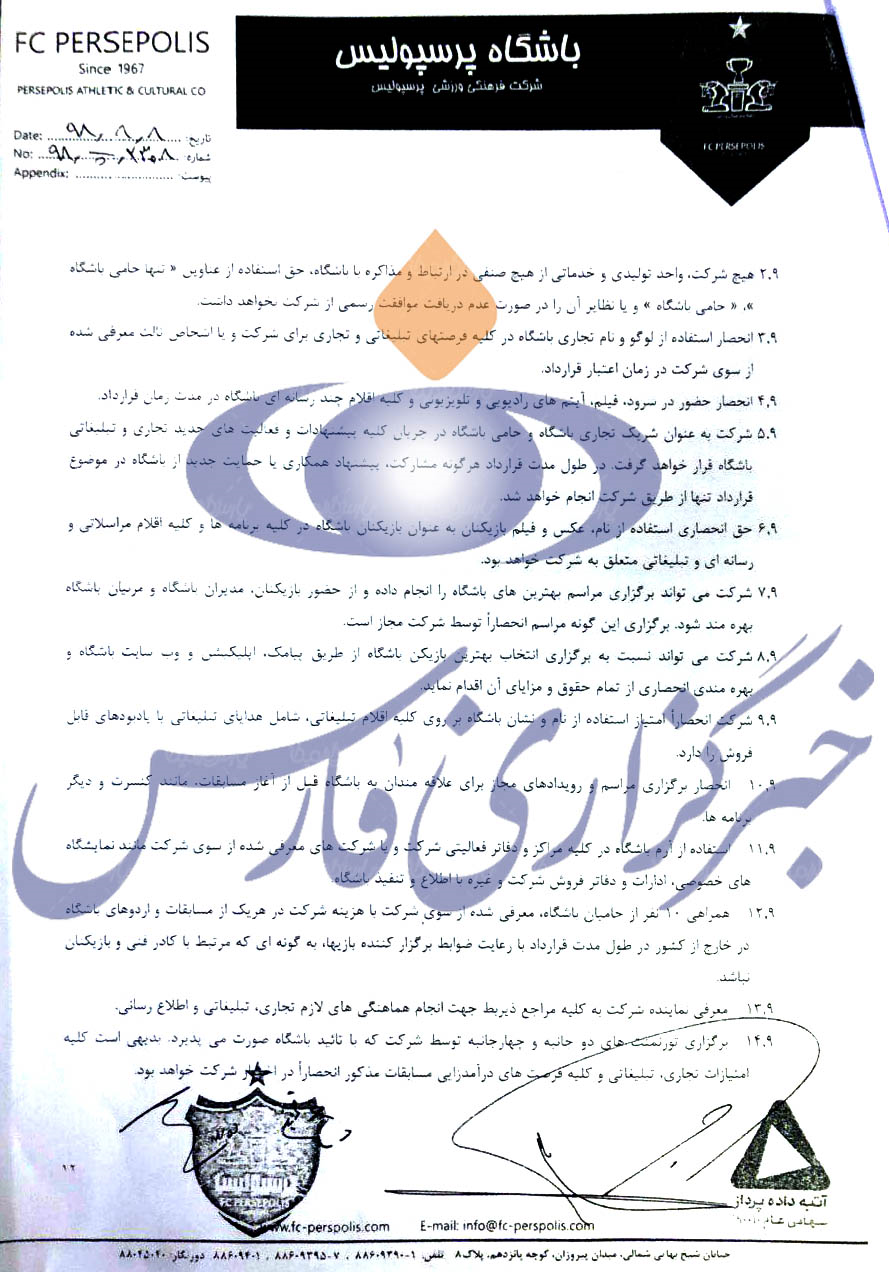 FC PERSEPOLIS
Since 1967
PERSEPOLIS ATHLETIC & CULTURAL CO
باشگاه پرسپولیس
شرکت فرهنگی ورزشی پرسپولیس
FC PERSEPOLIS
Date: ۹۸,۶,۸ تاریخ:
No: شماره:
Appendix: پیوست:
۲.۹ هیچ شرکت، واحد تولیدی و خدماتی از هیچ صنفی در ارتباط و مذاکره با باشگاه، حق استفاده از عناوین « تنها حامی باشگاه
»، « حامی باشگاه » و یا نظایر آن را در صورت عدم دریافت موافقت رسمی از شرکت نخواهد داشت.
۳.۹ انحصار استفاده از لوگو و نام تجاری باشگاه در کلیه فرصتهای تبلیغاتی و تجاری برای شرکت و یا اشخاص ثالث معرفی شده
از سوی شرکت در زمان اعتبار قرارداد.
۴.۹ انحصار حضور در سرود، فیلم، آیتم های رادیویی و تلویزیونی و کلیه اقلام چند رسانه ای باشگاه در مدت زمان قرارداد.
۵.۹ شرکت به عنوان شریک تجاری باشگاه و حامی باشگاه در جریان کلیه پیشنهادات و فعالیت های جدید تجاری و تبلیغاتی
باشگاه قرار خواهد گرفت. در طول مدت قرارداد هرگونه مشارکت، پیشنهاد همکاری یا حمایت جدید از باشگاه در موضوع
قرارداد تنها از طریق شرکت انجام خواهد شد.
۶.۹ حق انحصاری استفاده از نام، عکس و فیلم بازیکنان به عنوان بازیکنان باشگاه در کلیه برنامه ها و کلیه اقلام مراسلاتی و
رسانه ای و تبلیغاتی متعلق به شرکت خواهد بود.
۷.۹ شرکت می تواند برگزاری مراسم بهترین های باشگاه را انجام داده و از حضور بازیکنان، مدیران باشگاه و مربیان باشگاه
بهره مند شود. برگزاری این گونه مراسم انحصاراً توسط شرکت مجاز است.
۸.۹ شرکت می تواند نسبت به برگزاری انتخاب بهترین بازیکن باشگاه از طریق پیامک، اپلیکیشن و وب سایت باشگاه و
بهره مندی انحصاری از تمام حقوق و مزایای آن اقدام نماید.
۹.۹ شرکت انحصاراً امتیاز استفاده از نام و نشان باشگاه بر روی کلیه اقلام تبلیغاتی، شامل هدایای تبلیغاتی یا یادبودهای قابل
فروش را دارد.
۱۰.۹ انحصار برگزاری مراسم و رویدادهای مجاز برای علاقه مندان به باشگاه قبل از آغاز مسابقات، مانند کنسرت و دیگر
برنامه ها.
۱۱.۹ استفاده از آرم باشگاه در کلیه مراکز و دفاتر فعالیتی شرکت و یا شرکت های معرفی شده از سوی شرکت مانند نمایشگاه
های خصوصی، ادارات و دفاتر فروش شرکت و غیره با اطلاع و تنفیذ باشگاه.
۱۲.۹ همراهی ۱۰ نفر از حامیان باشگاه، معرفی شده از سوی شرکت با هزینه شرکت در هریک از مسابقات و اردوهای باشگاه
در خارج از کشور در طول مدت قرارداد با رعایت ضوابط برگزار کننده بازیها، به گونه ای که مرتبط با کادر فنی و بازیکنان
نباشد.
۱۳.۹ معرفی نماینده شرکت به کلیه مراجع ذیربط جهت انجام هماهنگی های لازم تجاری، تبلیغاتی و اطلاع رسانی.
۱۴.۹ برگزاری تورنمنت های دو جانبه و چهارجانبه توسط شرکت که با تائید باشگاه صورت می پذیرد. بدیهی است کلیه
امتیازات تجاری، تبلیغاتی و کلیه فرصت های درآمدزایی مسابقات مذکور انحصاراً در شرکت خواهد بود.
خبرگزاری فارس
۱۲
FC PERSEPOLIS
آتیه داده پرداز
سهامی عام
www.fc-perspolis.com E-mail: info@fc-perspolis.com
خیابان شیخ بهائی شمالی، میدان پیروزان، کوچه پانزدهم، پلاک ۸ تلفن: ۱-۸۸۶۰۹۳۹۰ ، ۷-۸۸۶۰۹۳۹۵ ، ۸۸۶۰۹۴۰۱ دورنگار: ۸۸۰۴۵۰۴۰